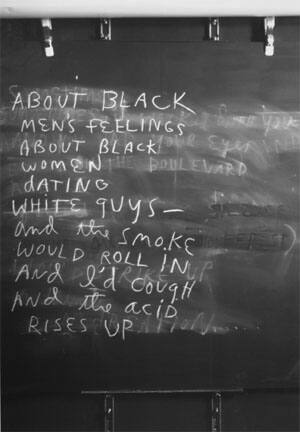 ABOUT BLACK
MEN'S FEELINGS
ABOUT BLACK
WOMEN THE BOULEVARD
DATING
WHITE GUYS—
and the SMOKE
WOULD ROLL IN
And I'd COUGH
And the acid
RISES UP